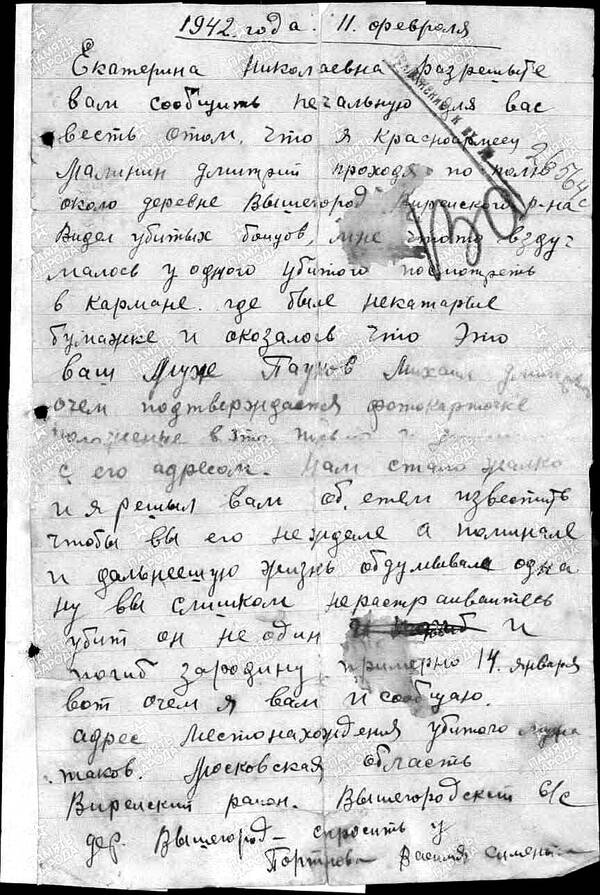 1942. года. 11. февраля
Екатерина Николаевна разрешыте
вам сообщить печальную для вас
весть отом, что я Красноармеец
Малинин Дмитрий проходя по полю
около деревне Вышегород Вирейского р-на
Видел убитых бойцов, мне чтото взду-
малось у одного убитого посмотреть
в кармане. где были некатарые
бумажке и окозалось что это
ваш Муж Пауков Михаил
очем подтверждается фотокарточке
положенные в
с его адресом. Нам стало жалко
и я решыл вам об етем известить
чтобы вы его не ждале а поминале
и дальнеешую жизнь обдумывале одна
ну вы слишком нерастраивайтесь
убит он не один и
погиб зародину примерно 14. января
вот очем я вам и сообщаю.
адрес местонахождения убитого мужа
таков. Московская область
Вирейский район. Вышегородский с/с
дер. Вышегород - спросить у
Василия
28564
ПАМЯТЬ НАРОДА